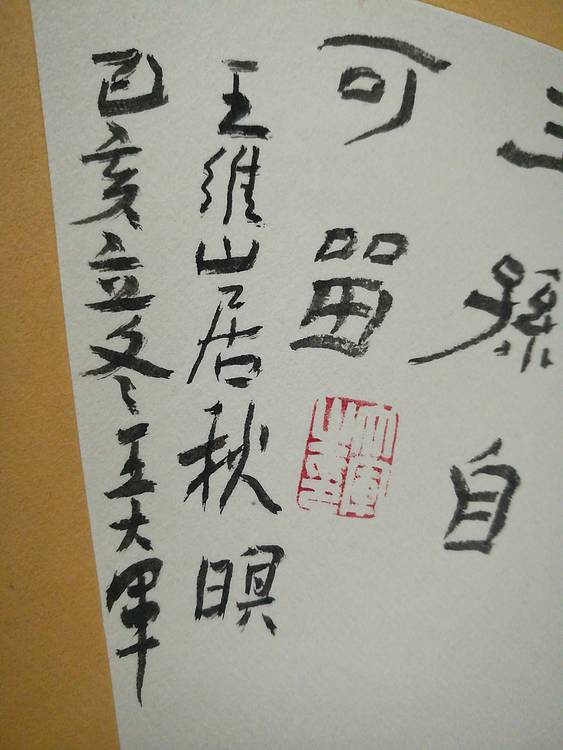 王孫自
可留
王維山居秋暝
己亥立冬王大軍